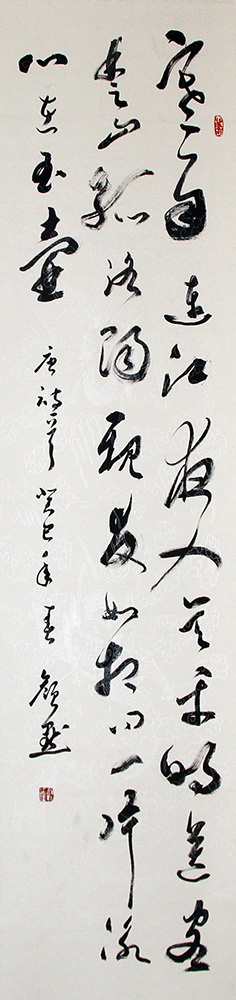 寒雨連江夜入吳平明送客
楚山孤洛陽親友如相問一片冰
心在玉壺 唐詩一首 癸巳年春